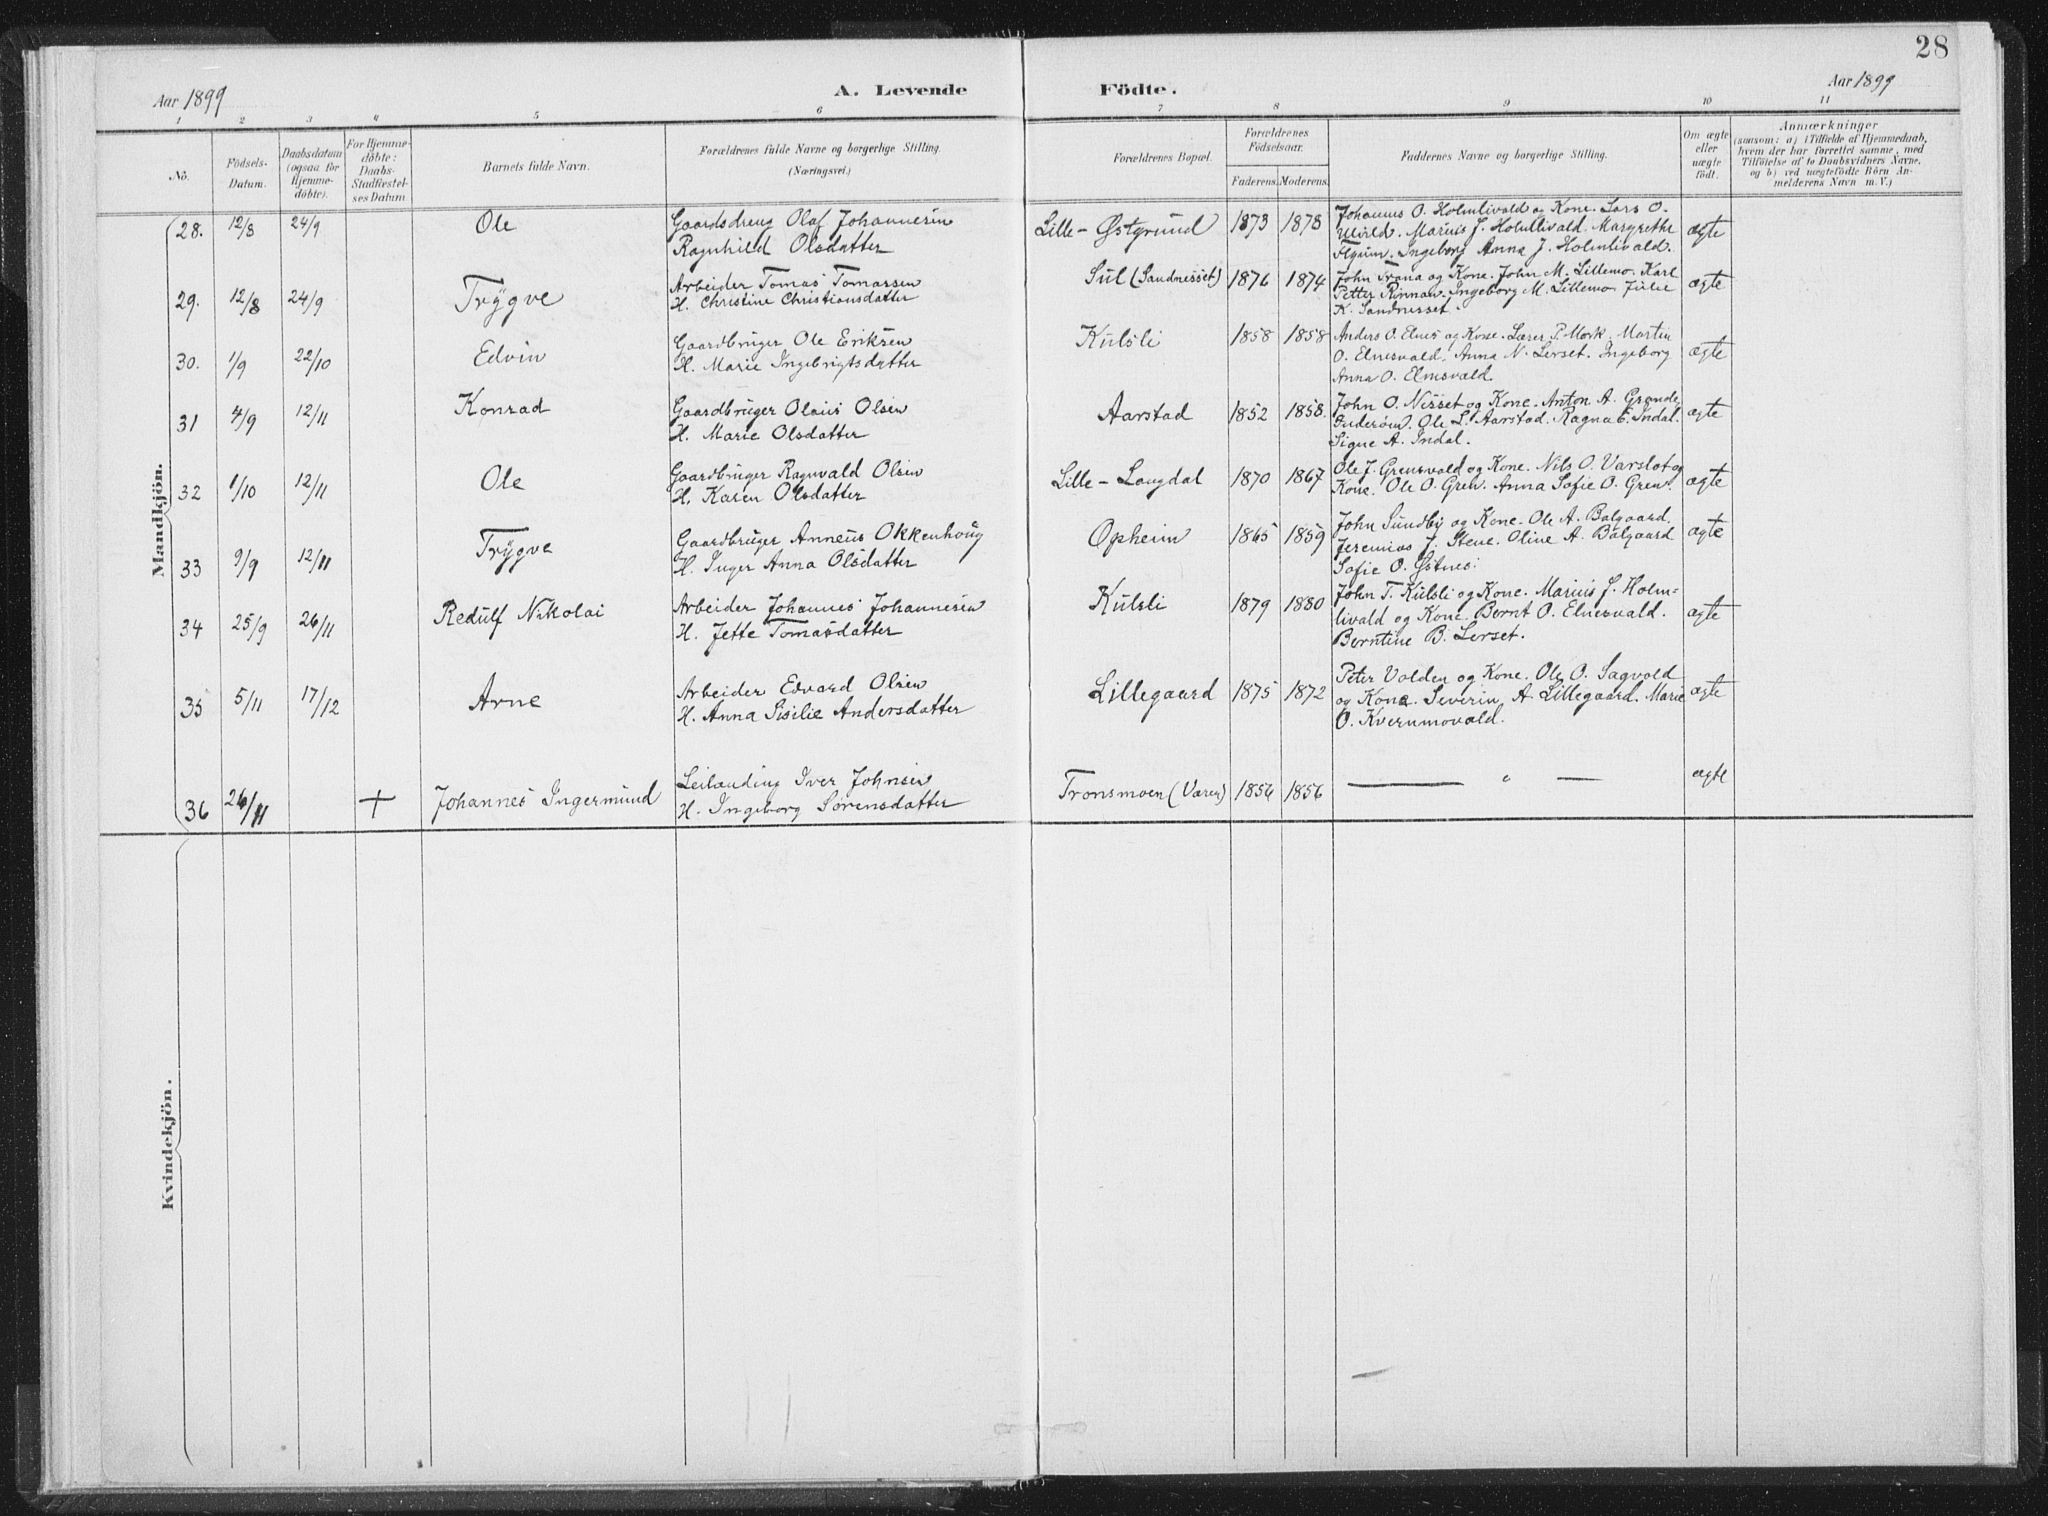 28
Aar 1899
A. Levende
Födte.
Aar 1899
1 2 3 4 5 6 7 8 9 10 11
No.
Födsels-
Datum.
Daabsdatum
(ogsaa for
Hjemme-
döbte).
For Hjemme-
döbte:
Daabs-
Stadfæstel-
ses Datum
Barnets fulde Navn.
Forældrenes fulde Navne og borgerlige Stilling.
(Næringsvei.)
Forældrenes Bopæl.
Forældrenes
Födselsaar.
Faderens. Moderens.
Faddernes Navne og borgerlige Stilling.
Om ægte
eller
uægte
födt.
Anmærkninger
(saasom: a) i Tilfælde af Hjemmedaab,
hvem der har forrettet samme, med
Tilföielse af to Daabsvidners Navne,
og b) ved uægtefödte Börn An-
melderens Navn m. V.)
Mandkjön.
28. 12/8 24/9 Ole
Gaardsdreng Olaf Johannesen
Ragnhild Olsdatter
Lille-Østgrund 1873 1878
Johannes O. Holmlivald og Kone. Lars O.
Marius J. Holmlivald. Margrethe
Ingeborg Anna J. Holmlivald.
ægte
29. 12/8 24/9 Trygve
Arbeider Tomas Tomassen
H. Christine Christiansdatter
Sul (Sandnesset) 1876 1874
John Trana og Kone. John M. Lillemo. Karl
Petter Rinnan. Ingeborg M. Lillemo. Julie
K. Sandnesset.
ægte
30. 1/9 22/10 Edvin
Gaardbruger Ole Eriksen
H. Marie Ingebrigtsdatter
Kulsli 1858 1858
Anders O. Elnes og Kone. Lærer P. Mork. Martin
O. Elnesvald. Anna N. Lerset. Ingeborg
Anna O. Elnesvald.
ægte
31 4/9 12/11 Konrad
Gaardbruger Olaus Olsen
H. Marie Olsdatter
Aarstad 1852 1858.
John O. Nisset og Kone. Anton A. Grande,
Inderøen. Ole L. Aarstad. Ragna E. Indal.
Signe A. Indal.
ægte
32 1/10 12/11 Ole
Gaardbruger Ragnvald Olsen
H. Karen Olsdatter
Lille-Langdal 1870 1867
Ole J. Grensvald og Kone. Nils O. Varslot og
Kone. Ole O. Gren. Anna Sofie O. Gren.
ægte
33 9/9 12/11 Trygve
Gaardbruger Anneus Okkenhoug
H. Inger Anna Olsdatter
Opheim 1865 1859
John Sundby og Kone. Ole A. Balgaard.
Jeremias J. Stene. Oline A. Balgaard
Sofie O. Østnes.
ægte
34 25/9 26/11 Redulf Nikolai
Arbeider Johannes Johannesen
H. Jette Tomasdatter
Kulsli 1879 1880
John T. Kulsli og Kone. Marius J. Holm-
livald og Kone. Bernt O. Elnesvald.
Berntine B. Lerset.
ægte
35 5/11 17/12 Arne
Arbeider Edvard Olsen
H. Anna Sisilie Andersdatter
Lillegaard 1875 1872
Peter Volden og Kone. Ole O. Sagvold
og Kone. Severin A. Lillegaard. Marie
O. Kvernmovald.
ægte
36 26/11 + Johannes Ingermund
Leilending Iver Johnsen
H. Ingeborg Sørensdatter
Tronsmoen (Væren) 1856 1856
— " —
ægte
Kvindekjön.